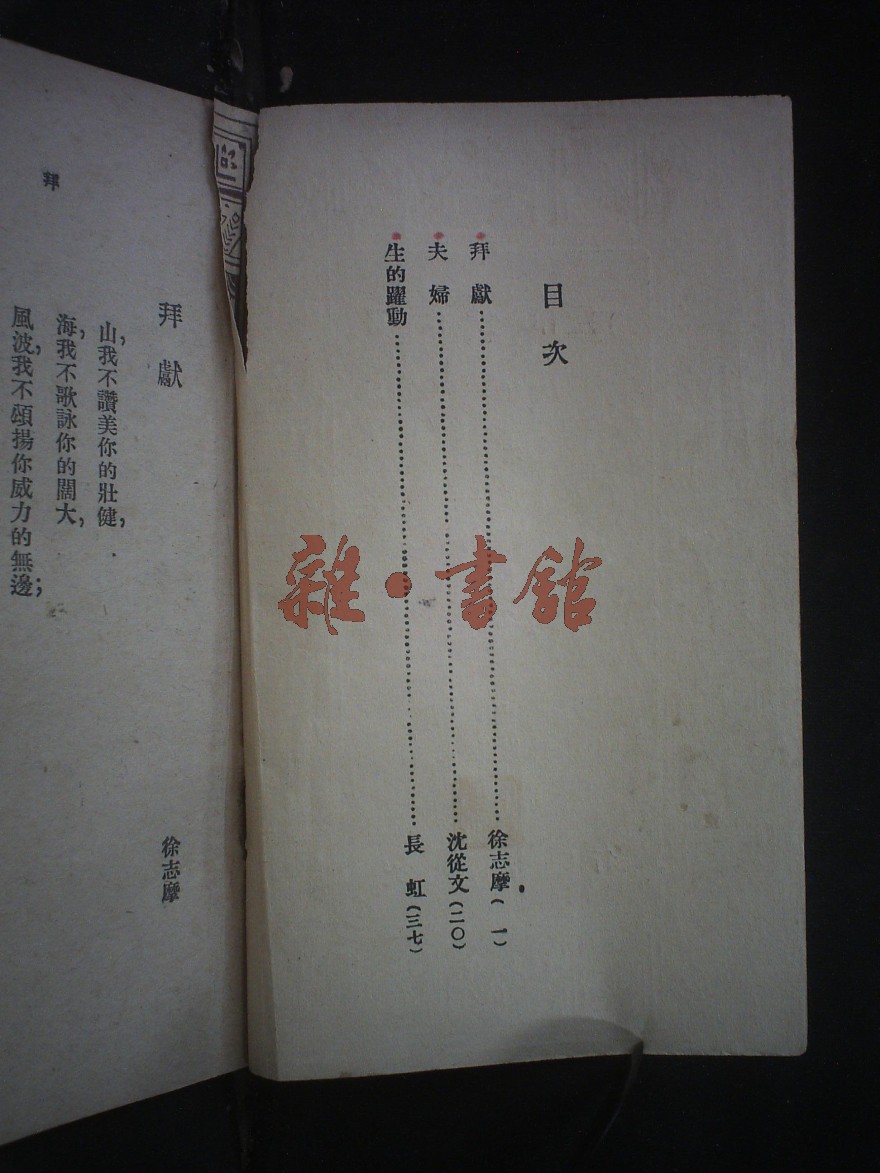 目次
拜獻……徐志摩(一)
夫婦……沈從文(二〇)
生的躍動……長虹(三七)
拜
拜獻
徐志摩
山,我不讚美你的壯健,
海,我不歌詠你的闊大,
風波,我不頌揚你威力的無邊;
雜·書館